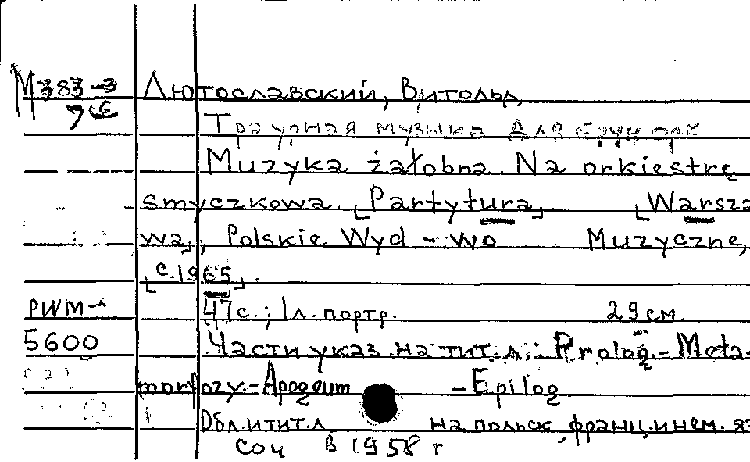 М383-3 Лютославский, Витольд
76
Траурная музыка для струн орк
Muzyka żałobna. Na orkiestrę
smyczkowa. [Partytura] [Warsza
wa], Polskie Wyd-wo Muzyczne,
[c.1965].
PWM- 47с.; 1л. портр. 29см
5600 Части указ. на тит. л.: Prolog.- Meta-
morfozy.- Apogeum - Epilog
Обл. и тит. л. на польск, франц. и нем. яз
Соч в 1958 г